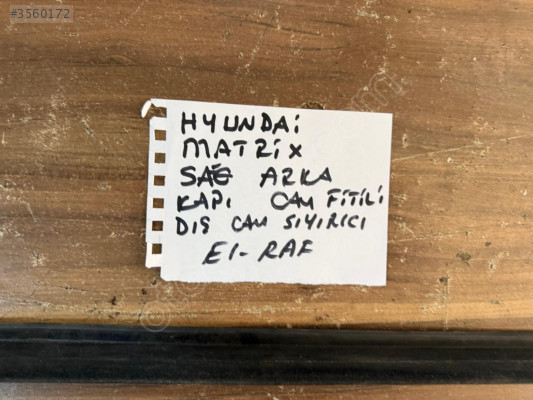 #3560172
HYUNDAi
MATRiX
SAĞ ARKA
KAPI CAM FiTiLi
DIŞ CAM SIYIRICI
E1-RAF